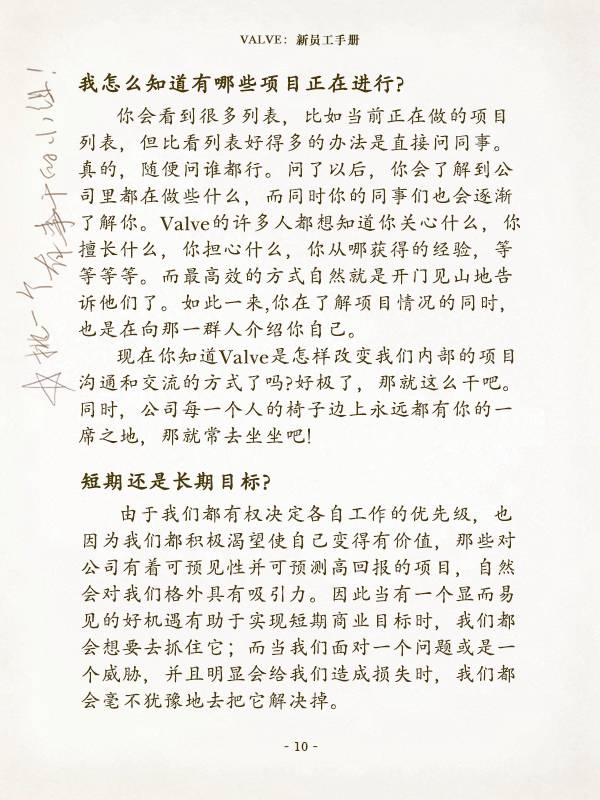 VALVE：新员工手册
我怎么知道有哪些项目正在进行？
你会看到很多列表，比如当前正在做的项目
列表，但比看列表好得多的办法是直接问同事。
真的，随便问谁都行。问了以后，你会了解到公
司里都在做些什么，而同时你的同事们也会逐渐
了解你。Valve的许多人都想知道你关心什么，你
擅长什么，你担心什么，你从哪获得的经验，等
等等等。而最高效的方式自然就是开门见山地告
诉他们了。如此一来,你在了解项目情况的同时，
也是在向那一群人介绍你自己。
现在你知道Valve是怎样改变我们内部的项目
沟通和交流的方式了吗?好极了，那就这么干吧。
同时，公司每一个人的椅子边上永远都有你的一
席之地，那就常去坐坐吧!
短期还是长期目标?
由于我们都有权决定各自工作的优先级，也
因为我们都积极渴望使自己变得有价值，那些对
公司有着可预见性并可预测高回报的项目，自然
会对我们格外具有吸引力。因此当有一个显而易
见的好机遇有助于实现短期商业目标时，我们都
会想要去抓住它；而当我们面对一个问题或是一
个威胁，并且明显会给我们造成损失时，我们都
会毫不犹豫地去把它解决掉。
- 10 -
挑一个有事干的小伙!